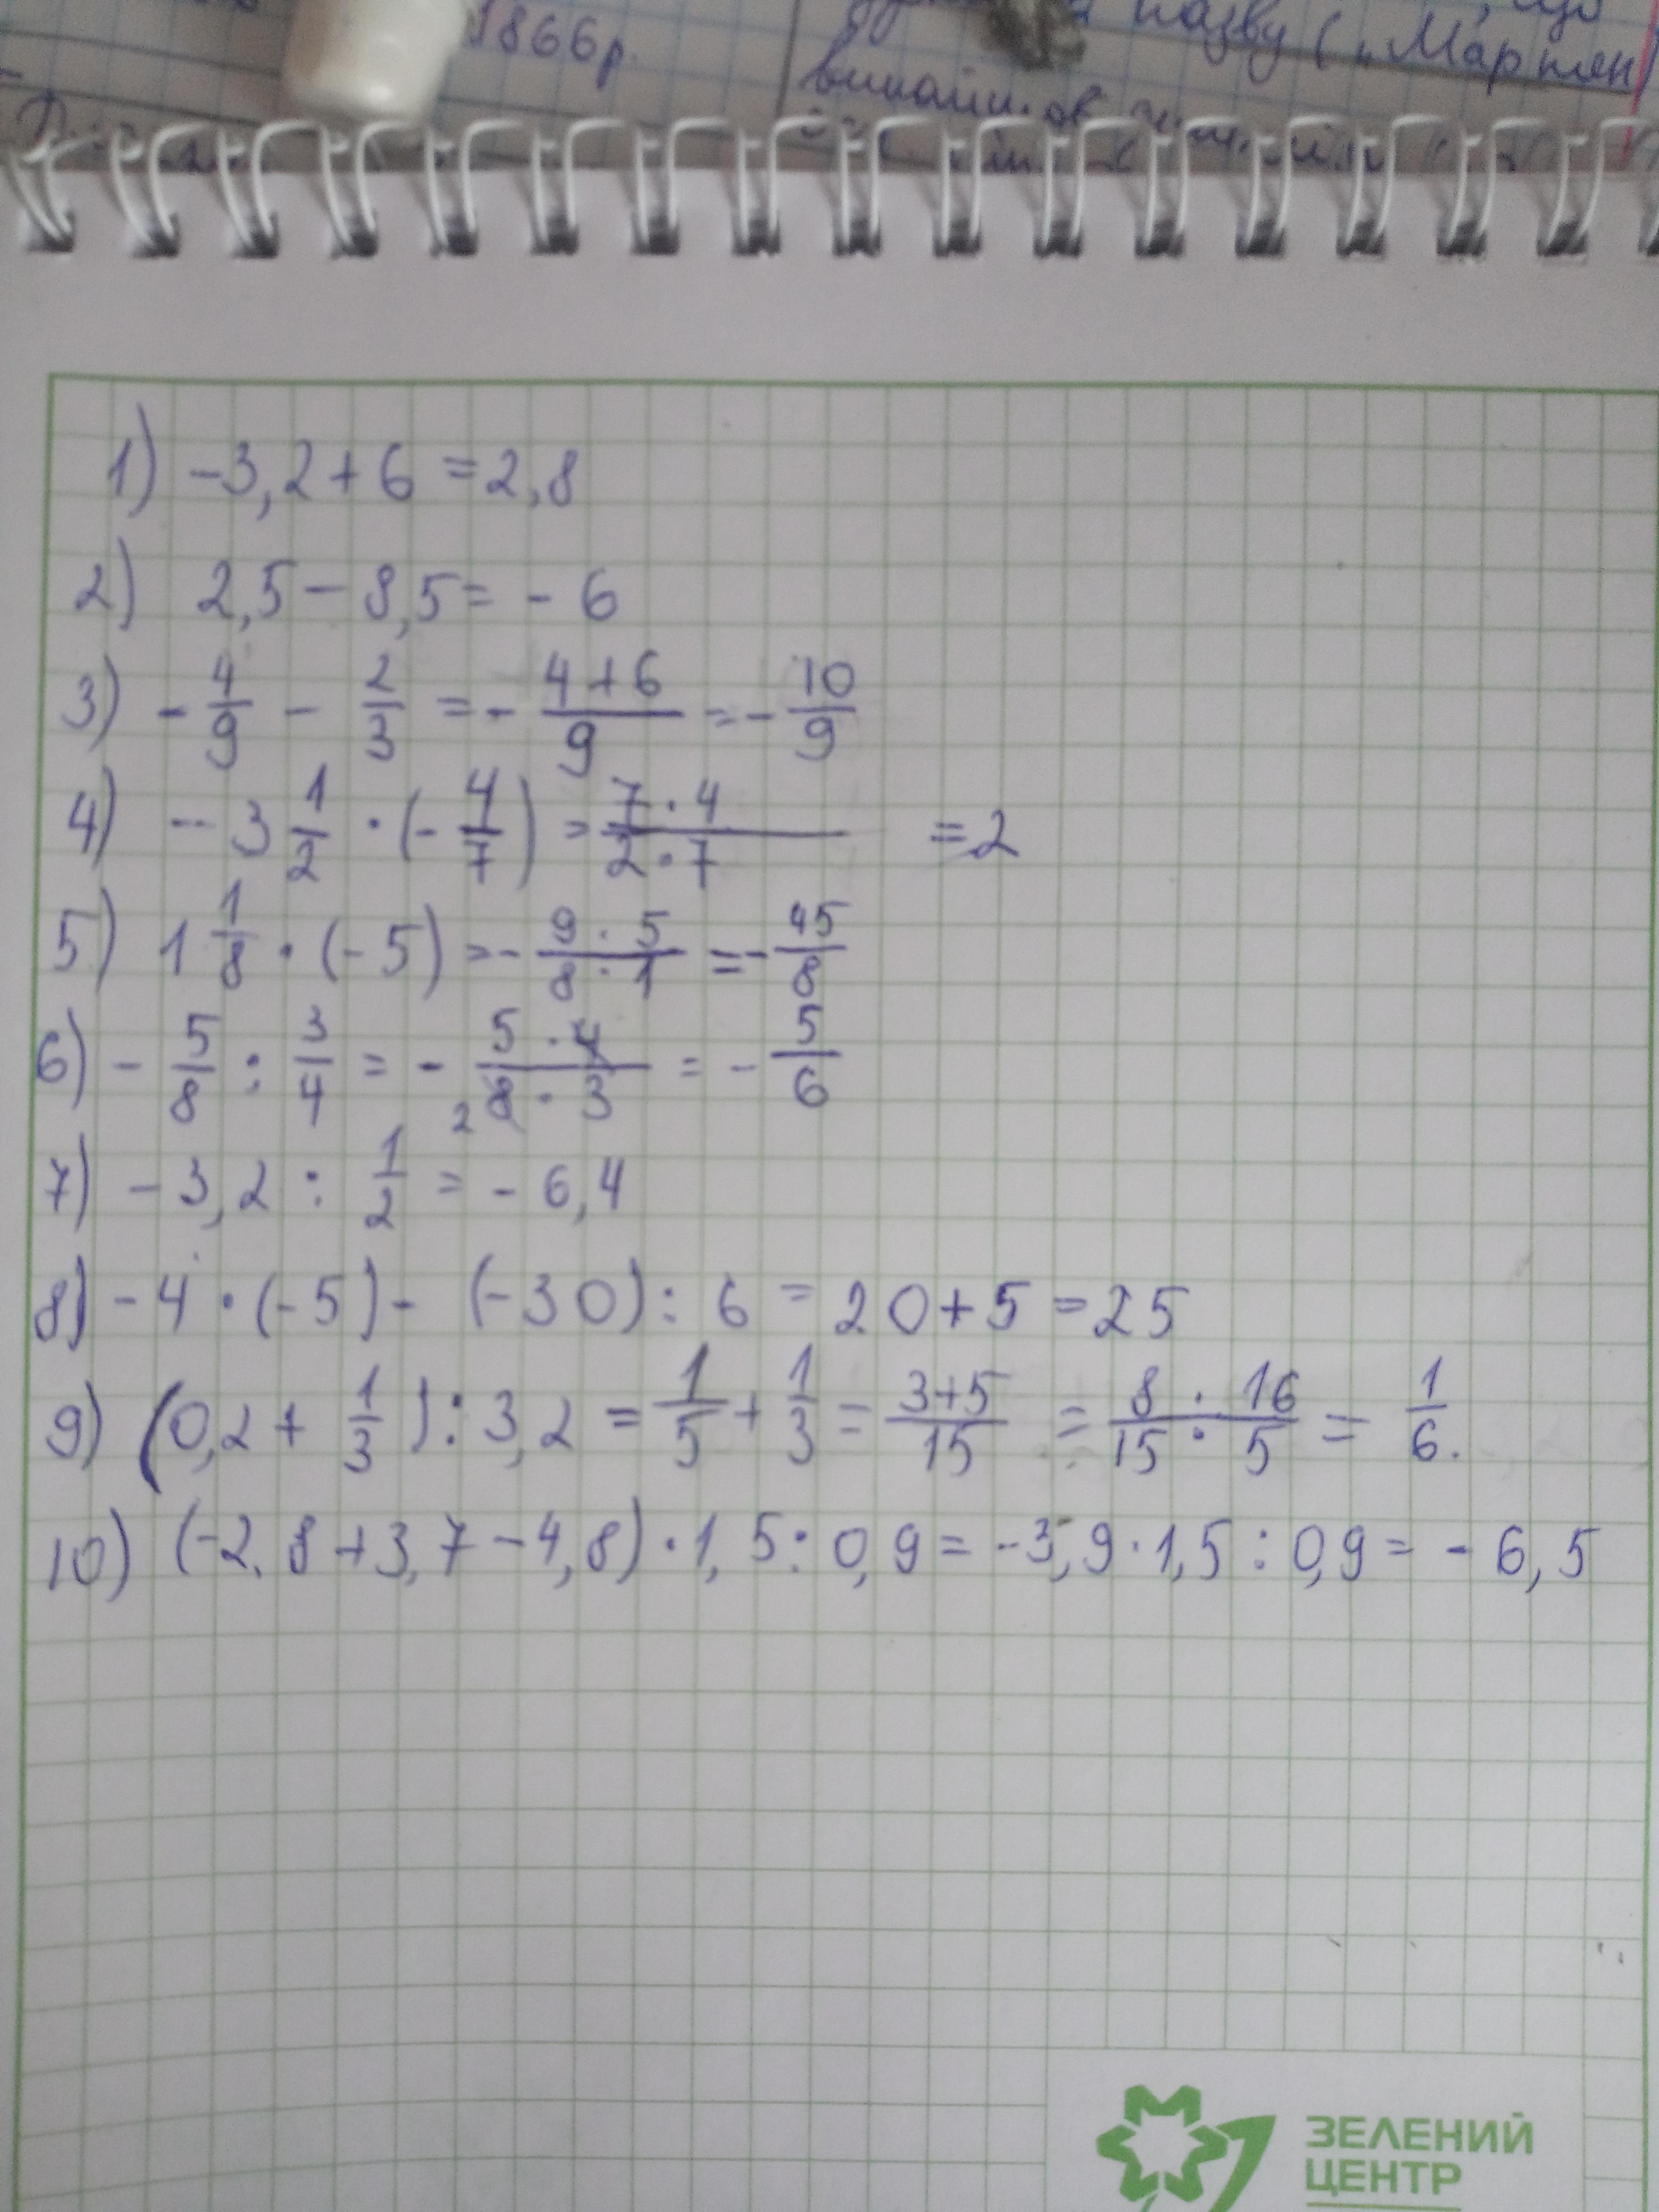 1866р.
назву („Мартен
1) -3,2 + 6 = 2,8
2) 2,5 - 8,5 = - 6
3) - 4/9 - 2/3 = - (4 + 6)/9 = - 10/9
4) - 3 1/2 · (- 4/7) = (7 · 4)/(2 · 7) = 2
5) 1 1/8 · (- 5) = - (9 · 5)/(8 · 1) = - 45/8
6) - 5/8 : 3/4 = - (5 · 4)/(2 8 · 3) = - 5/6
7) - 3,2 : 1/2 = - 6,4
8) - 4 · (- 5) - (- 30) : 6 = 20 + 5 = 25
9) (0,2 + 1/3) : 3,2 = 1/5 + 1/3 = (3+5)/15 = (8 · 16)/(15 · 5) = 1/6.
10) (-2.8 + 3,7 - 4,8) · 1,5 : 0,9 = -3,9 · 1,5 : 0,9 = - 6,5
ЗЕЛЕНИЙ
ЦЕНТР